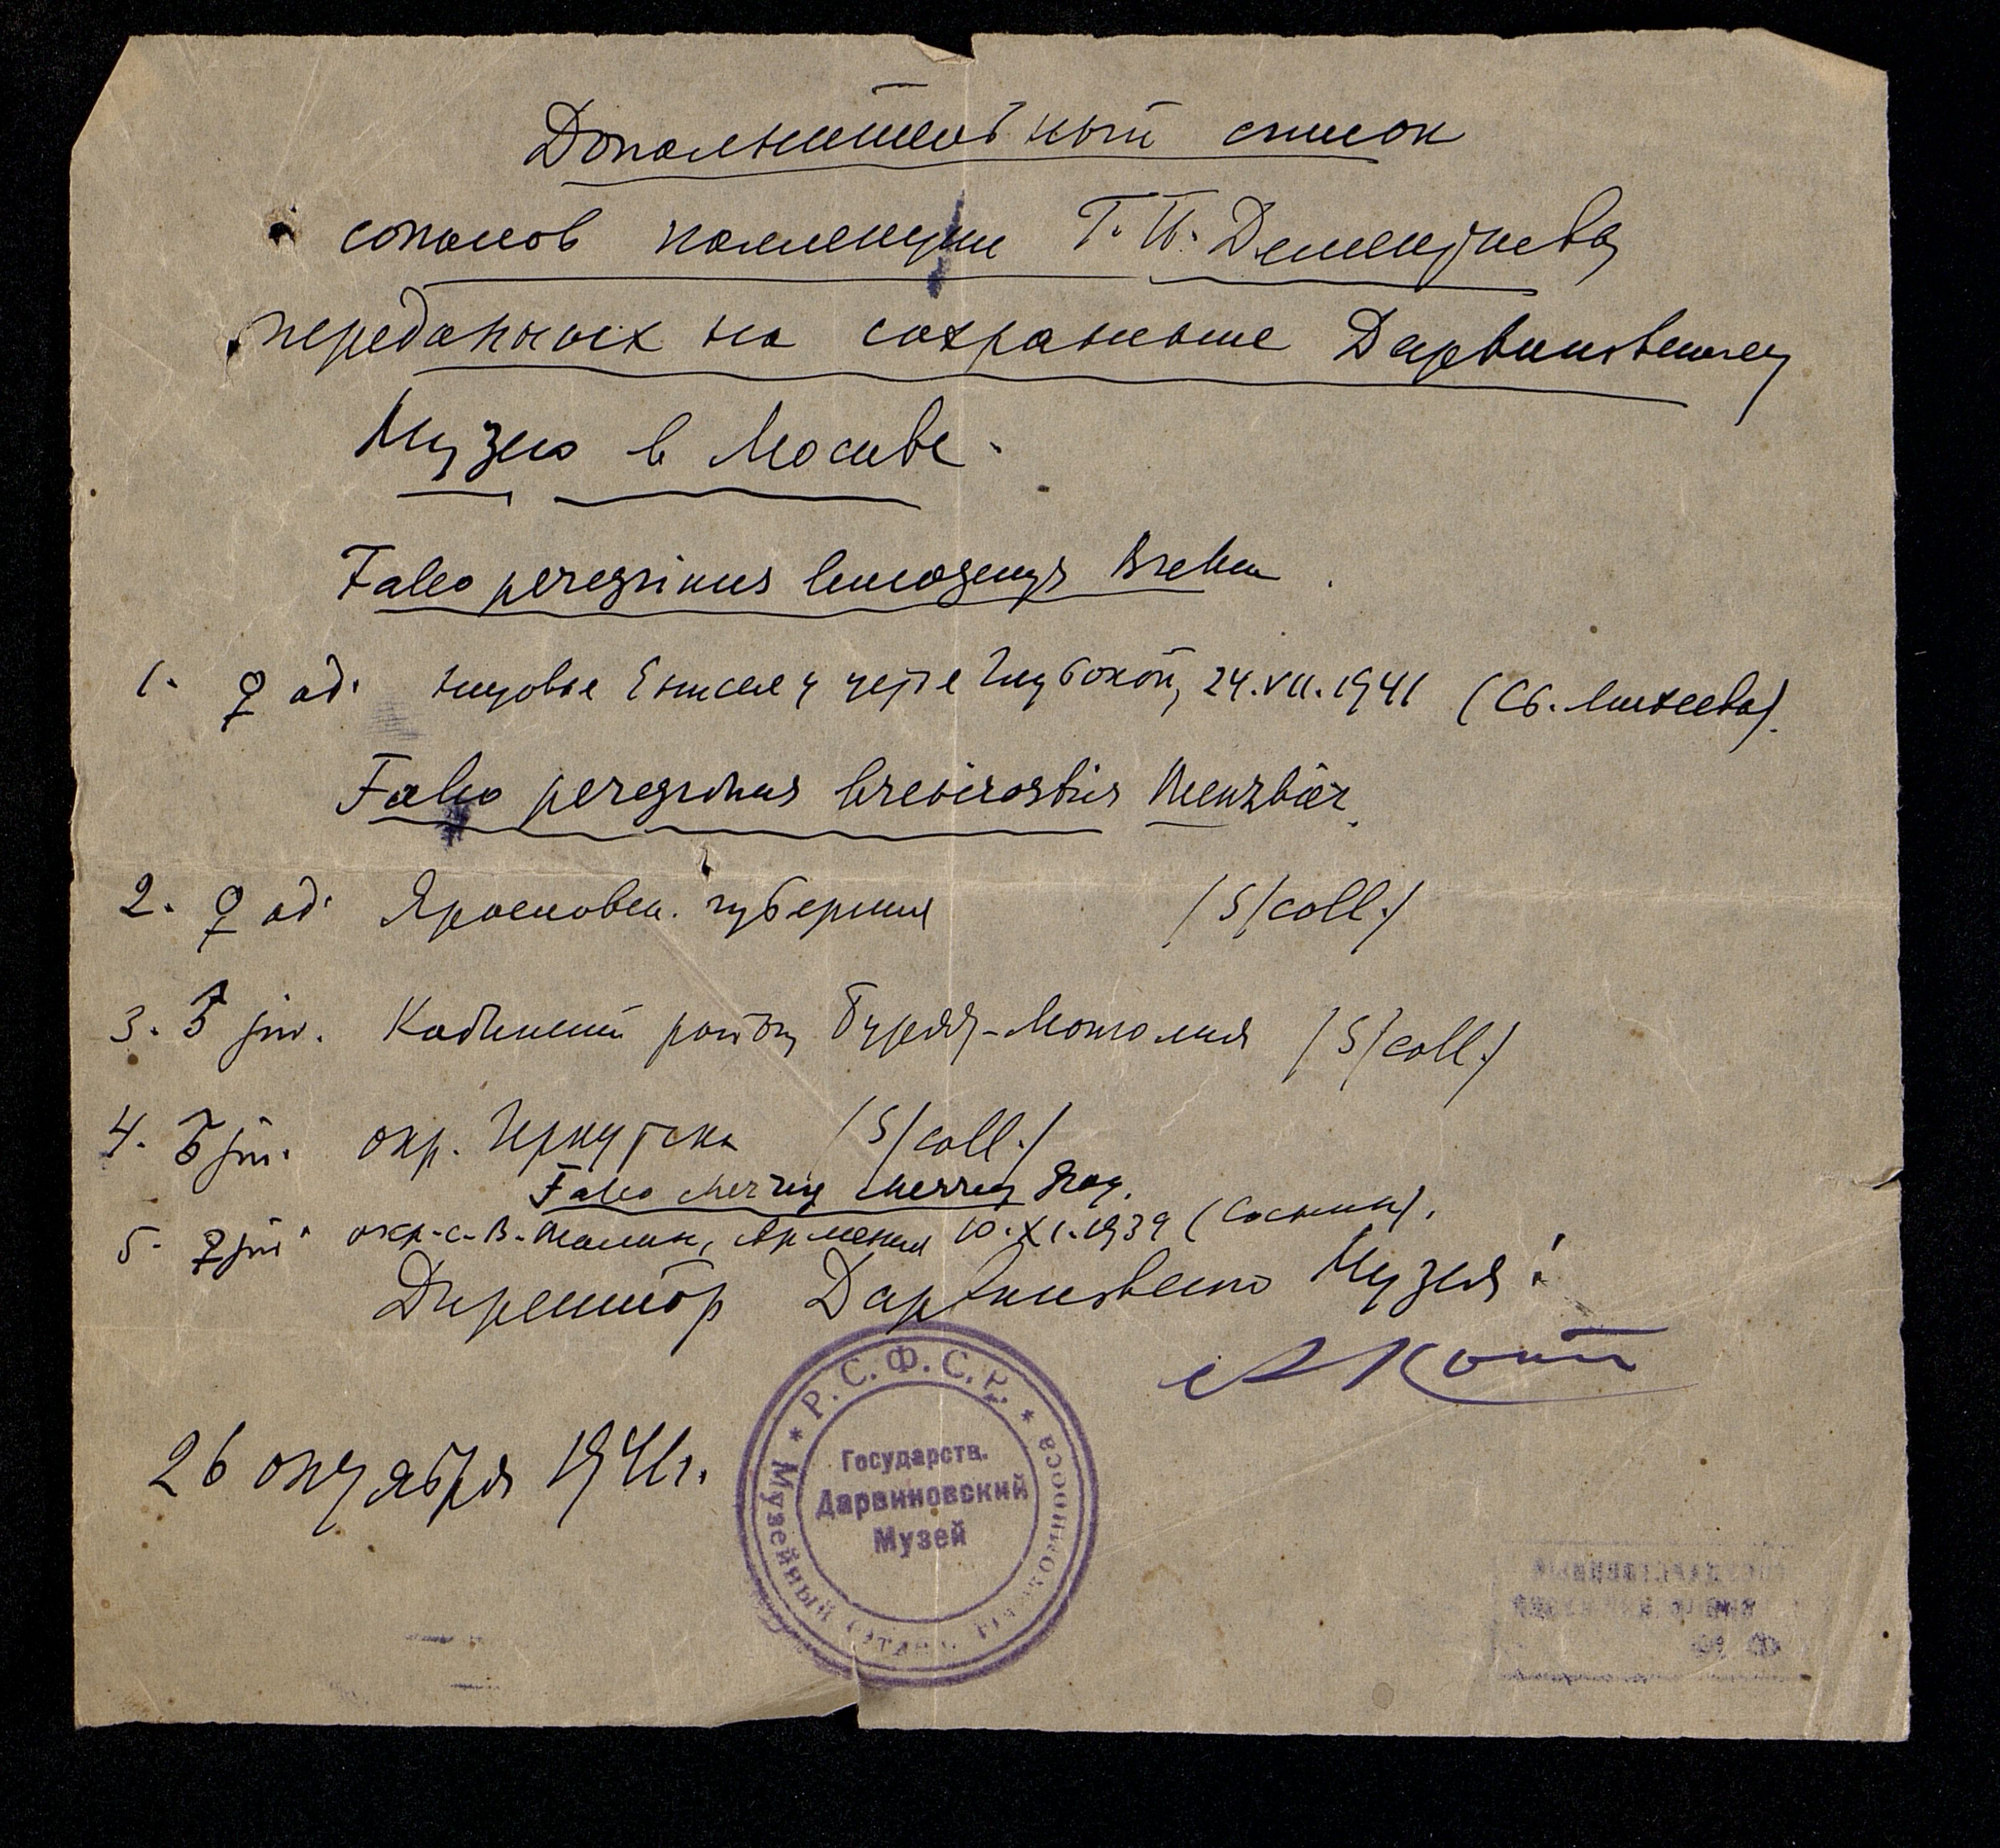 Дополнительный список
соколов коллекции Г. П. Дементьева
переданных на сохранение Дарвиновскому
Музею в Москве.
Falco peregrinus leucogenys Brehm
1. ♀ ad. низовье Енисея у Глубокой, 24.VII.1941 (Сб. Михеева).
Falco peregrinus brevirostris Menzbier.
2. ♀ ad. Ярославск. губерния /S/coll./
3. ♂ juv. Кабанский район, Бурят-Монголия /S/coll./
4. ♂ juv. окр. Иркутска /S/coll./
Falco cherrug cherrug Gray.
5. ♀ juv. окр. с. В. Талин, Армения 10.XI.1939 (Соснин).
Директор Дарвиновского Музея:
АКотс
26 октября 1941 г.
* Р.С.Ф.С.Р. *
Государств.
Дарвиновский
Музей
Музейный Отдел Главнауки Наркомпросса